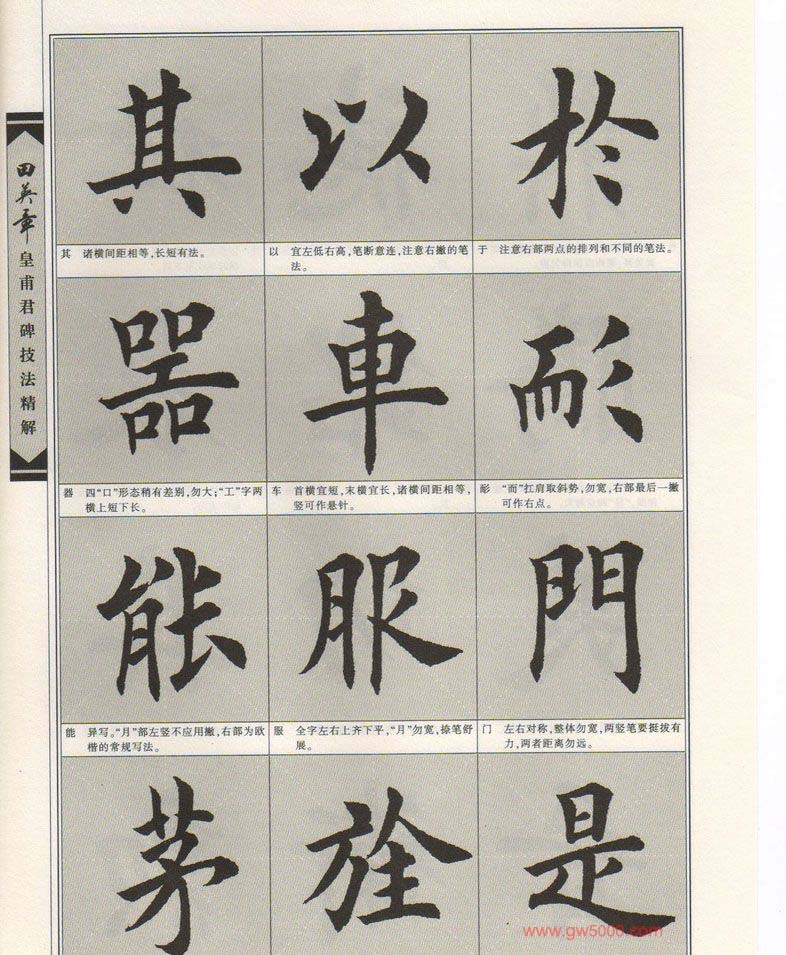 田英章皇甫君碑技法精解
其
以
於
其 诸横间距相等,长短有法。
以 宜左低右高,笔断意连,注意右撇的笔
法。
于 注意右部两点的排列和不同的笔法。
器
車
耏
器 四“口”形态稍有差别,勿大;“工”字两
横上短下长。
车 首横宜短,末横宜长,诸横间距相等,
竖可作悬针。
耏 “而”扛肩取斜势,勿宽,右部最后一撇
可作右点。
能
服
門
能 异写。“月”部左竖不应用撇,右部为欧
楷的常规写法。
服 全字左右上齐下平,“月”勿宽,捺笔舒
展。
门 左右对称,整体勿宽,两竖笔要挺拔有
力,两者距离勿远。
茅
是
www.gw5000.com